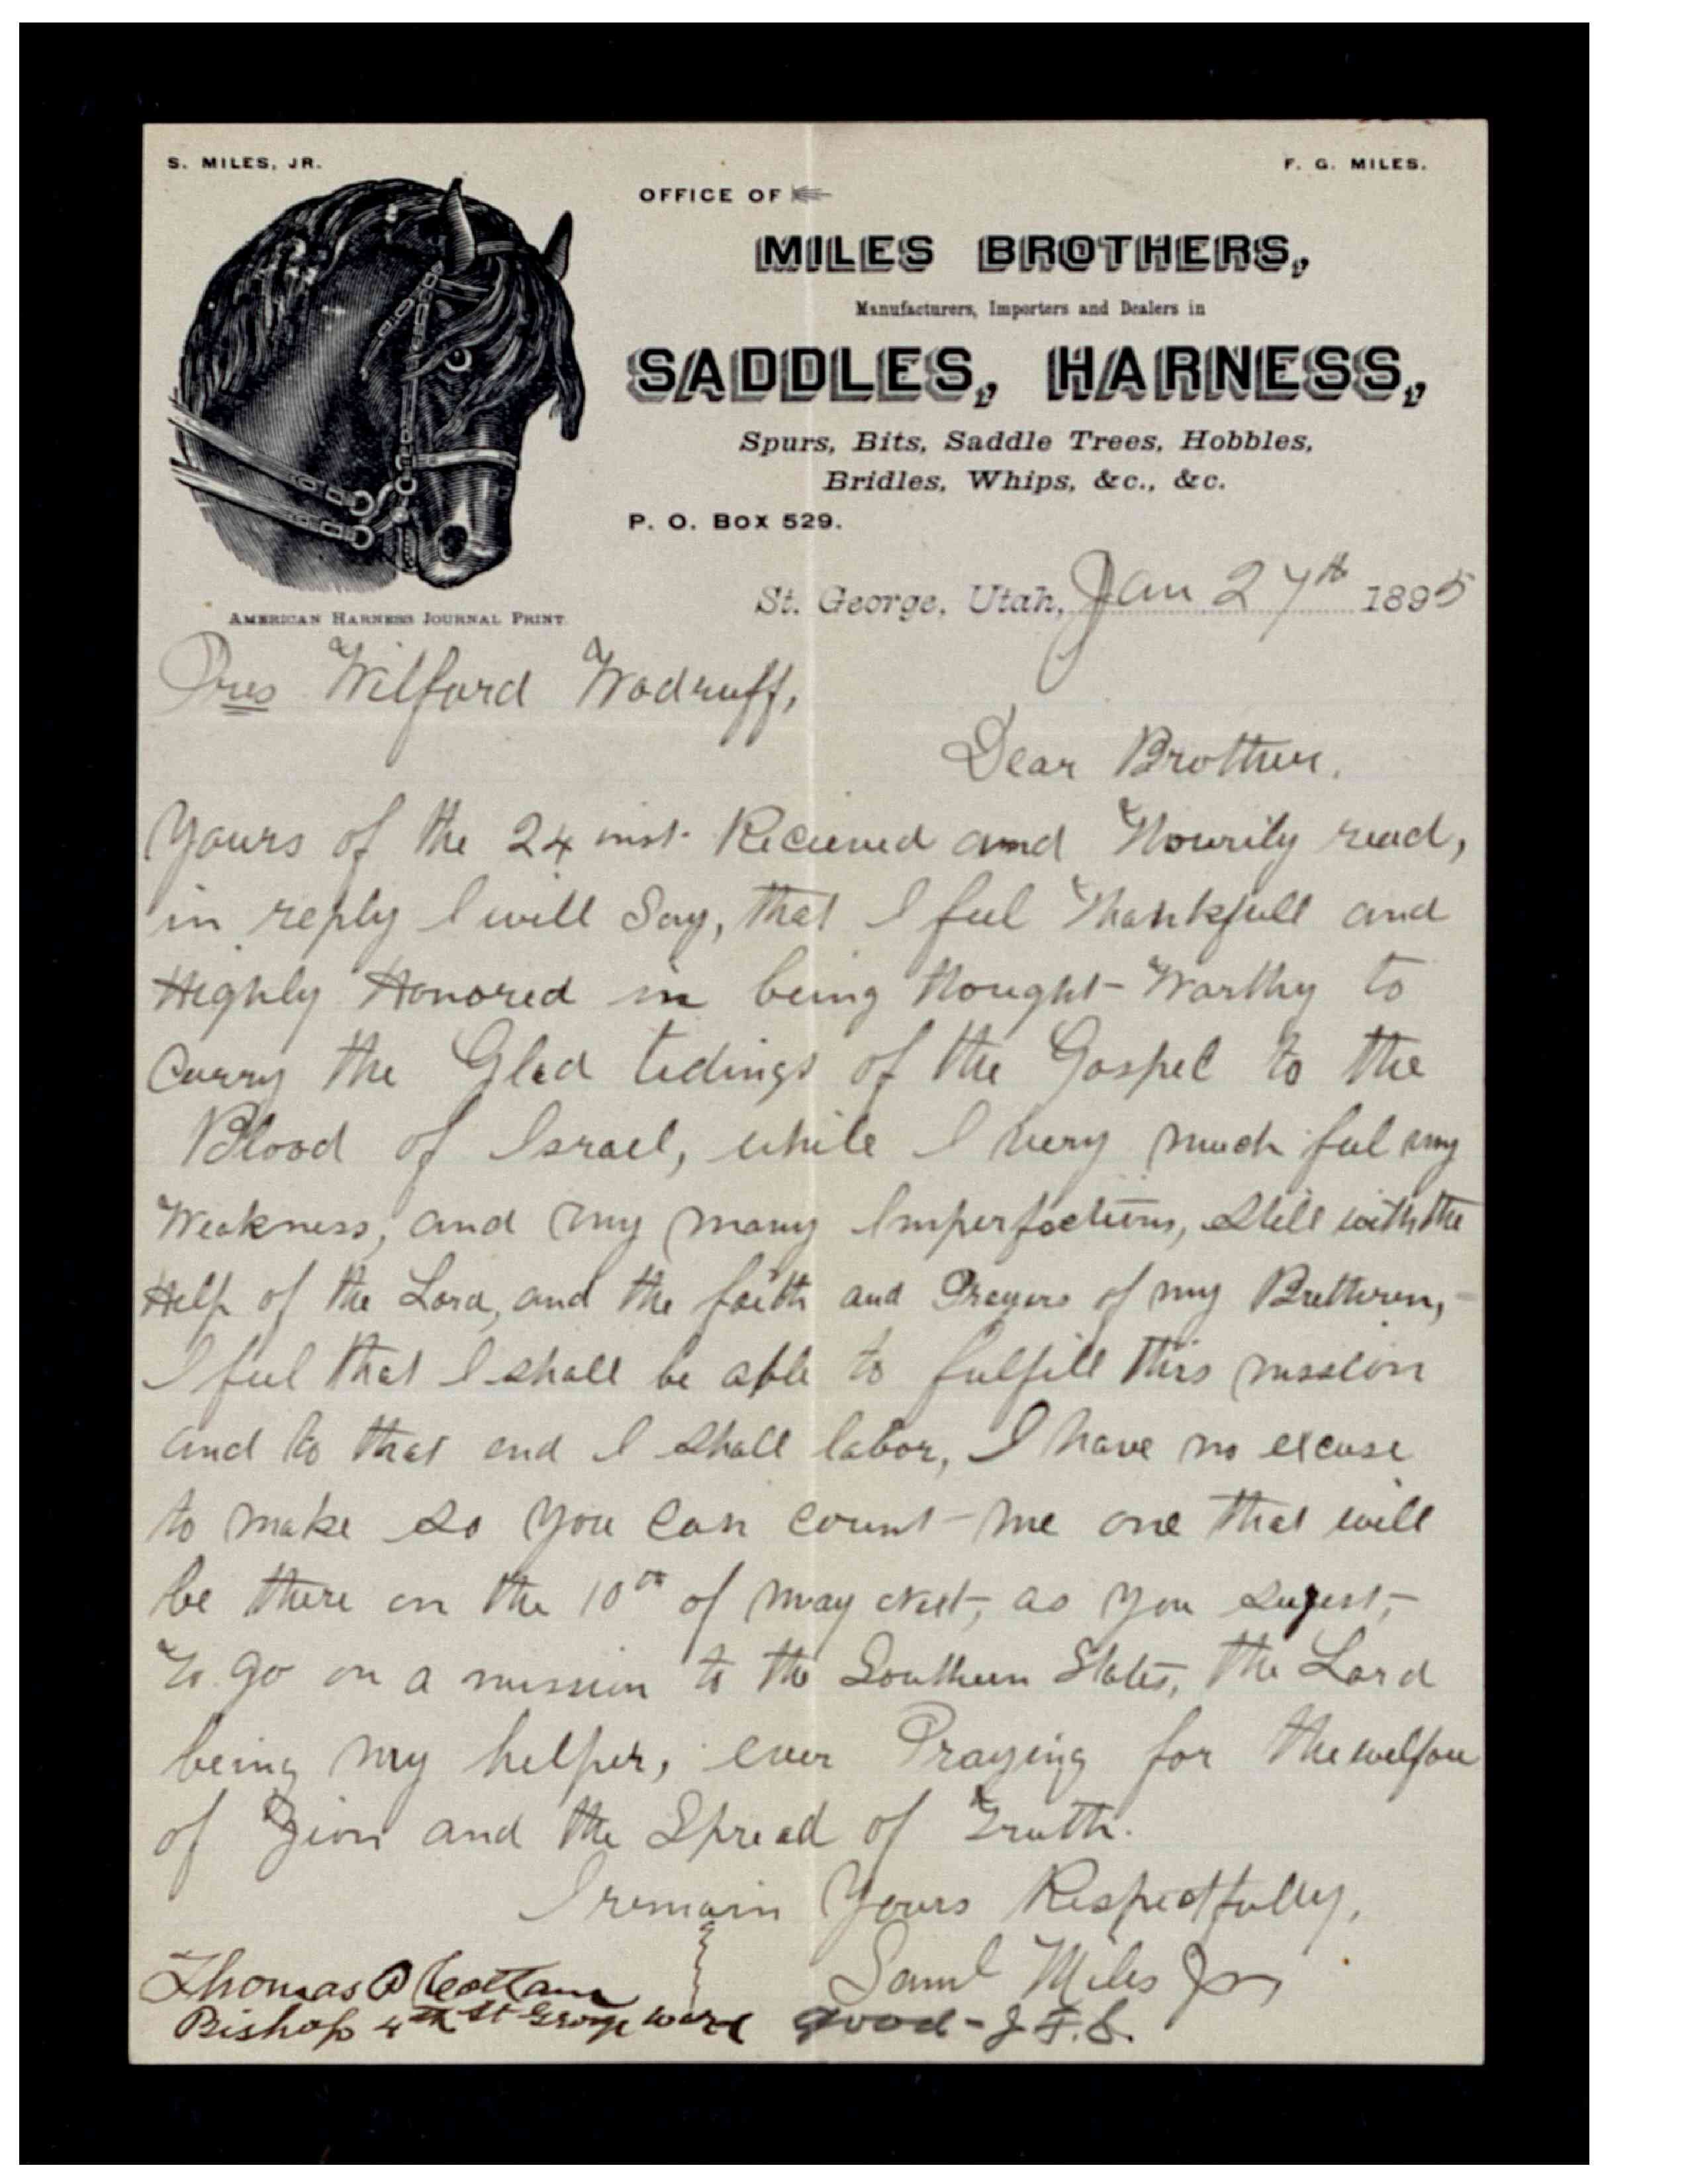 S. MILES, JR.
F. G. MILES.
OFFICE OF
MILES BROTHERS,
Manufacturers, Importers and Dealers in
SADDLES, HARNESS,
Spurs, Bits, Saddle Trees, Hobbles,
Bridles, Whips, &c., &c.
P. O. BOX 529.
St. George, Utah, Jan 27th 1895
AMERICAN HARNESS JOURNAL PRINT.
Pres Wilford Wodruff,
Dear Brother.
Yours of the 24 inst. Recieved and read,
in reply I will Say, that I feel Thankfull and
Highly Honored in being thought Worthy to
Carry the Glad tidings of the Gospel to the
Blood of Israel, while I very much feel my
Weakness, and my many Imperfections, Still with the
Help of the Lord, and the faith and Prayers of my Brethren,
I feel that I shall be able to fulfill this mission
and to that end I shall labor, I have no excuse
to make so you can count me one that will
be there on the 10th of May Next, as you sugest,
to go on a mission to the Southern States, the Lord
being my helper, ever Praying for the welfare
of Zion and the Spread of Truth.
I remain Yours Respectfully,
Saml Miles Jr
Thomas P Cottam
Bishop 4th St George Ward
Good - J. F. S.